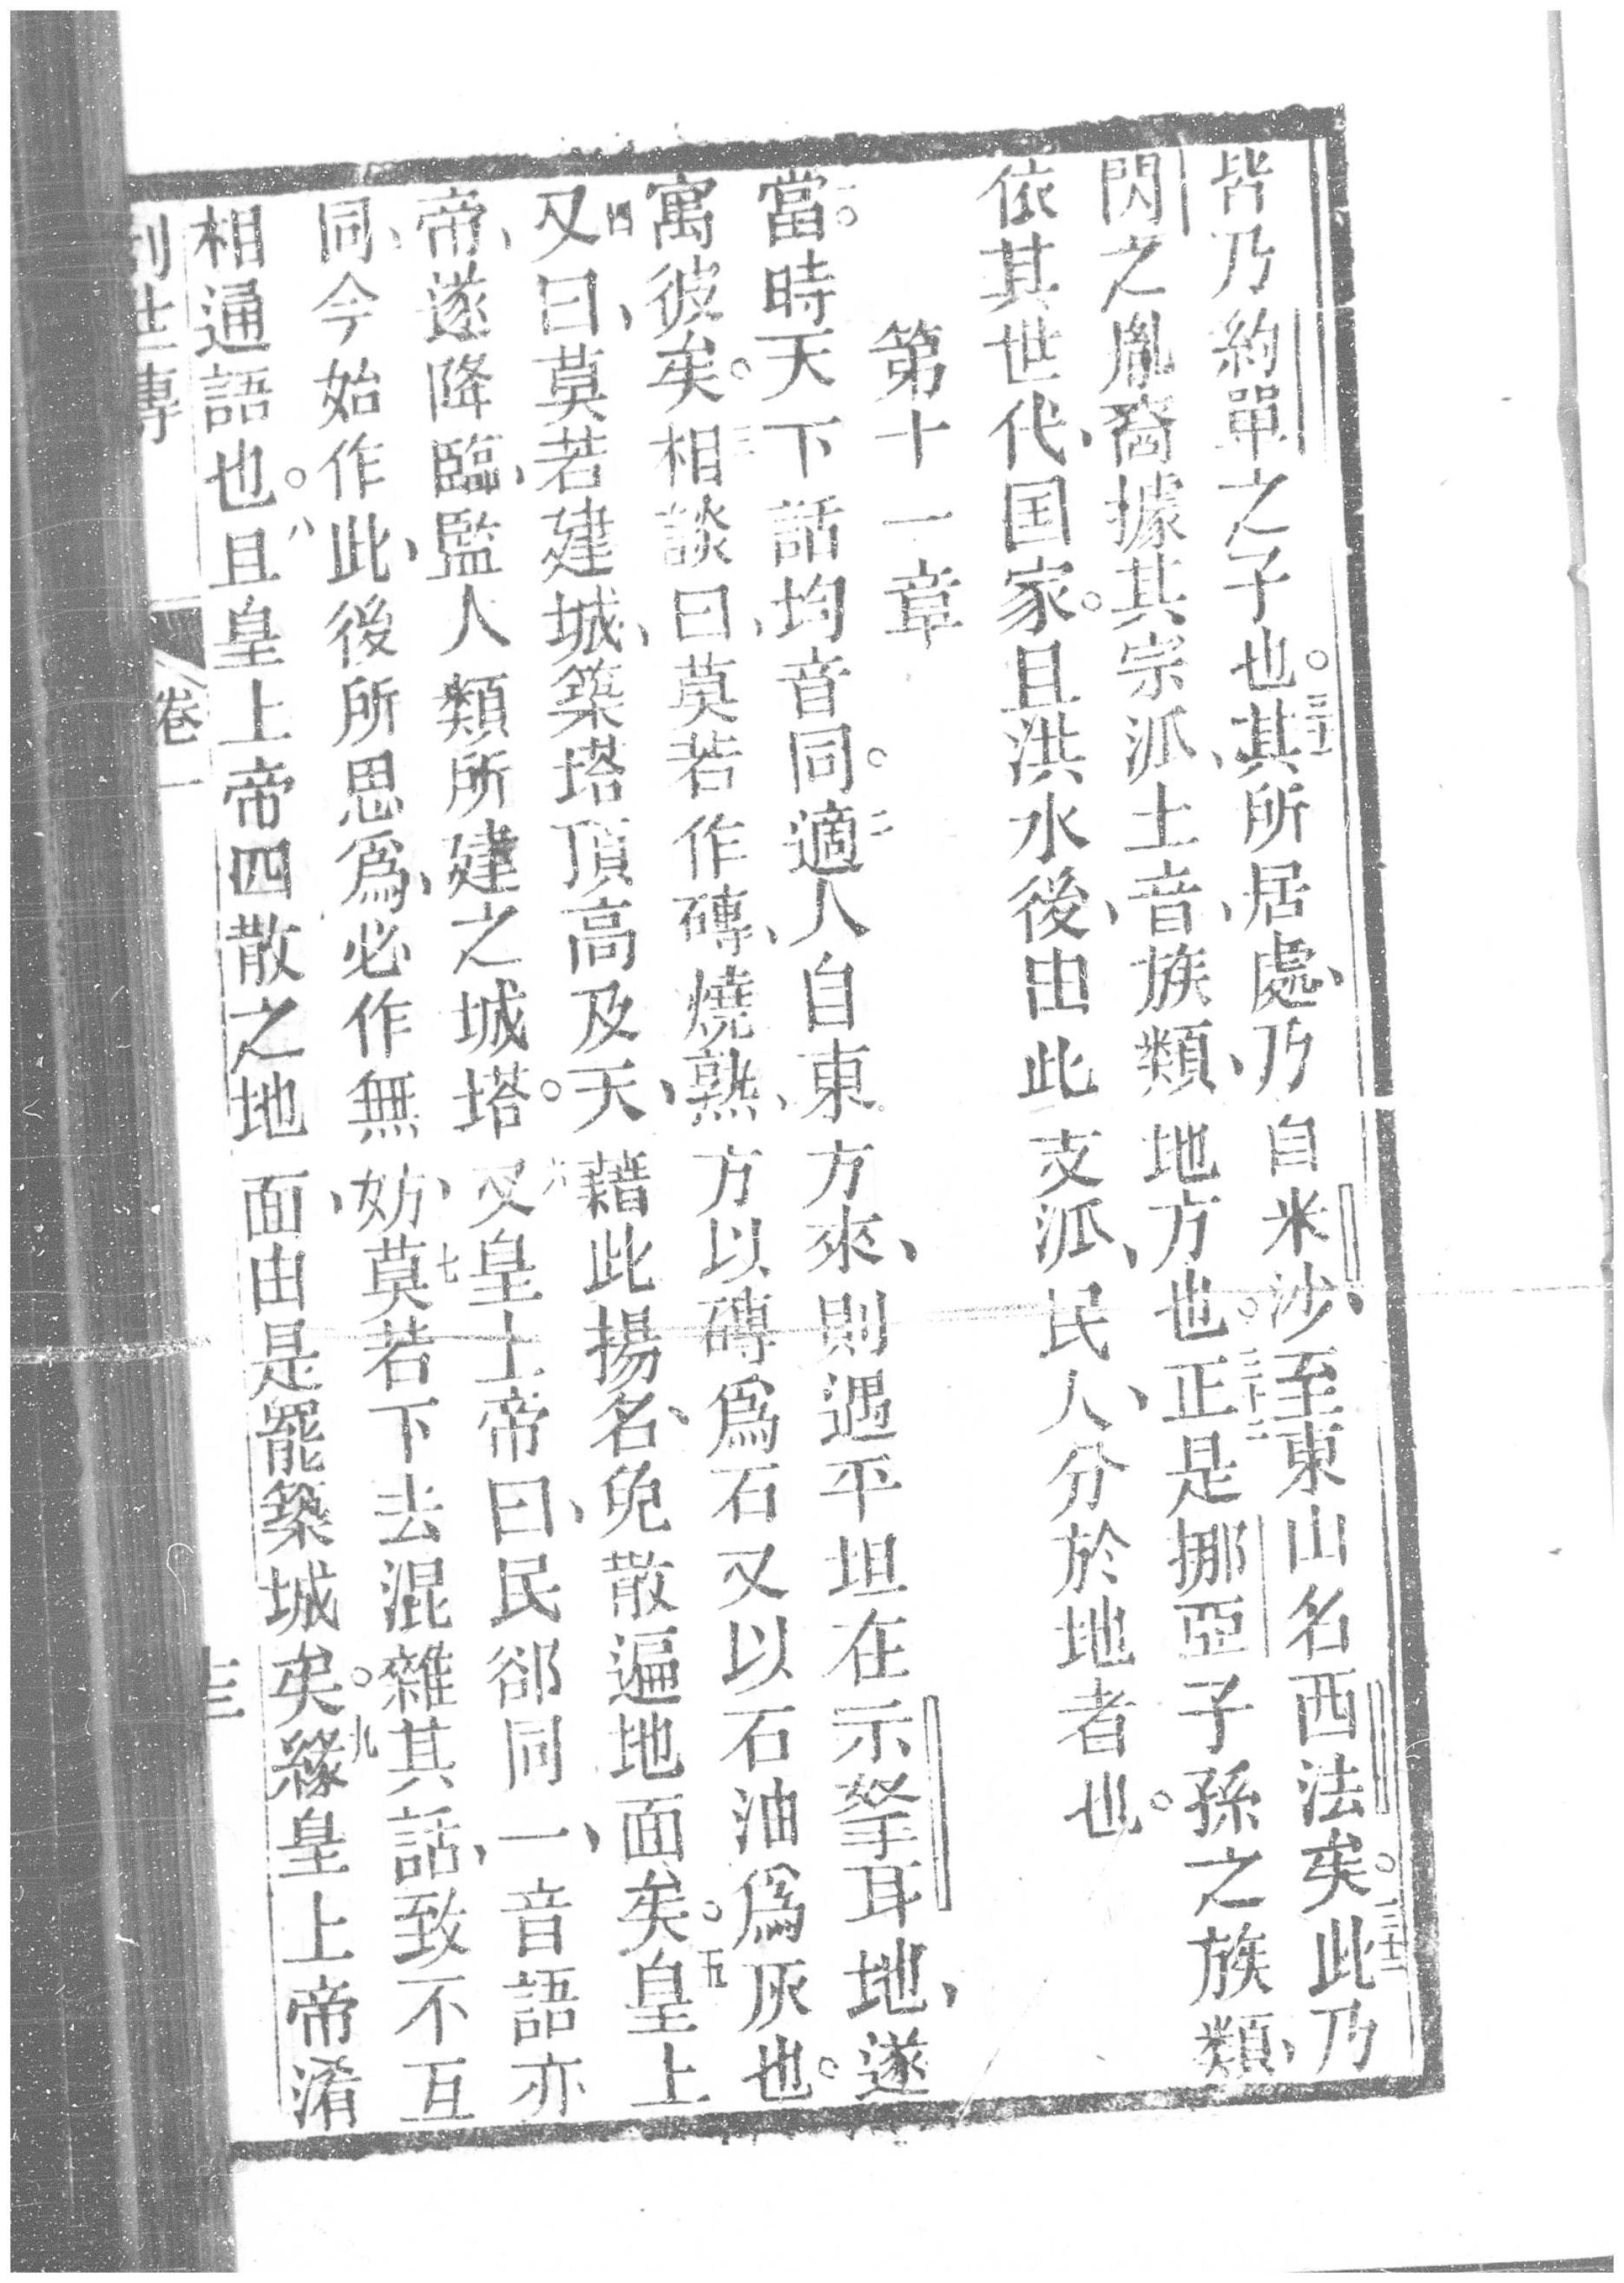 皆乃約單之子也。三十其所居處、乃自米沙、至東山名西法矣。三十一此乃
閃之胤裔據其宗派、土音、族類、地方也。三十二正是挪亞子孫之族類、
依其世代、国家。且洪水後、由此支派、民人、分於地者也。
第十一章
一。當時天下話均音同。二適人自東方來、則遇平坦在示拏耳地、遂
寓彼矣。三相談曰、莫若作磚、燒熟、方以磚爲石又以石油爲灰也。
四又曰、莫若建城、築塔頂高及天、藉此揚名、免散遍地面矣。五皇上
帝、遂降臨、監人類所建之城塔。六又皇上帝曰、民郤同一、音語亦
同、今始作此、後所思爲、必作無妨、七莫若下去混雜其話、致不互
相通語也。八且皇上帝四散之地面由是罷築城矣。九緣皇上帝淆
卷一